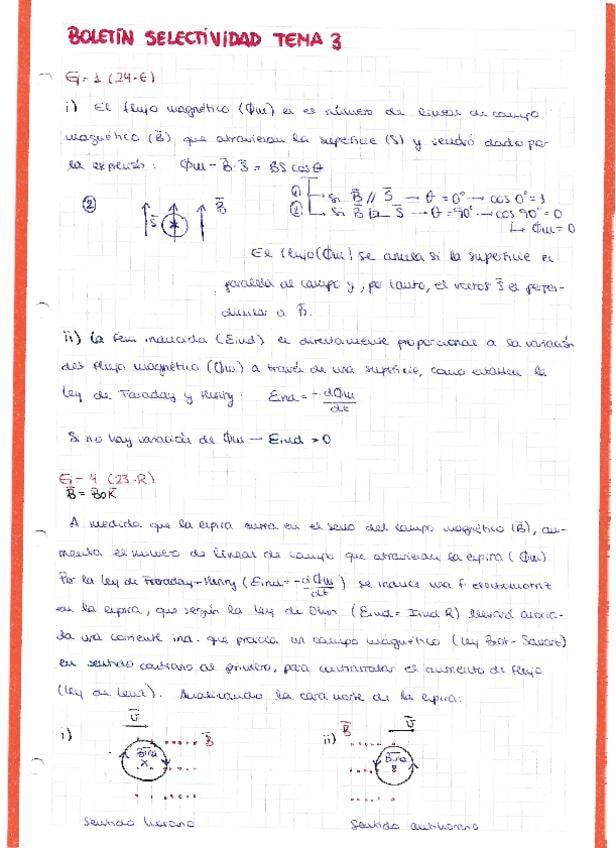 BOLETÍN SELECTIVIDAD TEMA 3
G-1 (24-E)
i) El flujo magnético (Φm) es el número de líneas de campo
magnético (B̄), que atraviesan la superficie (S) y vendrá dado por
la expresión: Φm = B̄·S̄ = BS cosθ
② S̄ B̄
① Si B̄ // S̄ → θ = 0° → cos 0° = 1
② Si B̄ ⊥ S̄ → θ = 90° → cos 90° = 0
↳ Φm = 0
El flujo (Φm) se anula si la superficie es
paralela al campo y, por tanto, el vector S̄ es perpen-
dicular a B̄.
ii) La fem inducida (Eind) es directamente proporcional a la variación
del flujo magnético (Φm) a través de una superficie, como establece la
ley de Faraday y Henry: Eind = -dΦm/dt
Si no hay variación de Φm → Eind = 0
G-4 (23-R)
B̄ = B₀K̄
A medida que la espira entra en el seno del campo magnético (B̄), au-
menta el número de líneas de campo que atraviesan la espira (Φm).
Por la ley de Faraday-Henry (Eind = -dΦm/dt) se induce una f electromotriz
en la espira, que según la ley de Ohm (Eind = Iind R) llevará asocia-
da una corriente ind. que provoca un campo magnético (ley Biot-Savart)
en sentido contrario al primero, para contrarrestar el aumento de flujo
(ley de Lenz). Analizando la cara norte de la espira:
i) v̄ B̄ B̄ind X
ii) B̄ v̄ B̄ind
Sentido horario Sentido antihorario